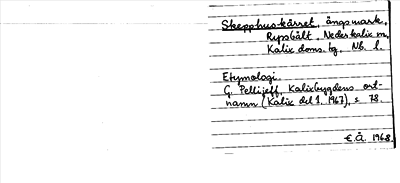 Skepphuskärret, ängsmark,
Rysbält, Nederkalix sn,
Kalix doms.tg, Nb. l.
Etymologi.
G. Pellijeff, Kalixbygdens ort-
namn (Kalix del 1. 1967), s. 78.
E.Å. 1968.